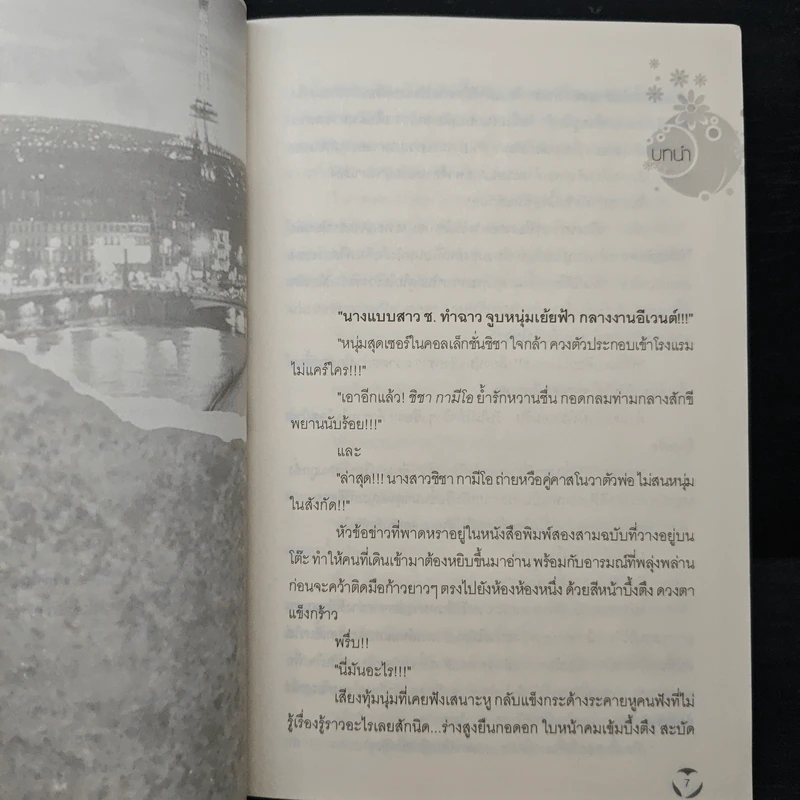 บทนำ
"นางแบบสาว ช. ทำฉาว จูบหนุ่มเย้ยฟ้า กลางงานอีเวนต์!!!"
"หนุ่มสุดเซอร์ในคอลเล็กชั่นชิชา ใจกล้า ควงตัวประกอบเข้าโรงแรม
ไม่แคร์ใคร!!!"
"เอาอีกแล้ว! ชิชา กามีโอ ย้ำรักหวานชื่น กอดกลมท่ามกลางสักขี
พยานนับร้อย!!!"
และ
"ล่าสุด!!! นางสาวชิชา กามีโอ ถ่ายหวือคู่คาสโนวาตัวพ่อ ไม่สนหนุ่ม
ในสังกัด!!"
หัวข้อข่าวที่พาดหราอยู่ในหนังสือพิมพ์สองสามฉบับที่วางอยู่บน
โต๊ะ ทำให้คนที่เดินเข้ามาต้องหยิบขึ้นมาอ่าน พร้อมกับอารมณ์ที่พลุ่งพล่าน
ก่อนจะคว้าติดมือก้าวยาวๆ ตรงไปยังห้องห้องหนึ่ง ด้วยสีหน้าบึ้งตึง ดวงตา
แข็งกร้าว
พรึ่บ!!
"นี่มันอะไร!!!"
เสียงทุ้มนุ่มที่เคยฟังเสนาะหู กลับแข็งกระด้างระคายหูคนฟังที่ไม่
รู้เรื่องรู้ราวอะไรเลยสักนิด...ร่างสูงยืนกอดอก ใบหน้าคมเข้มบึ้งตึง สะบัด
7